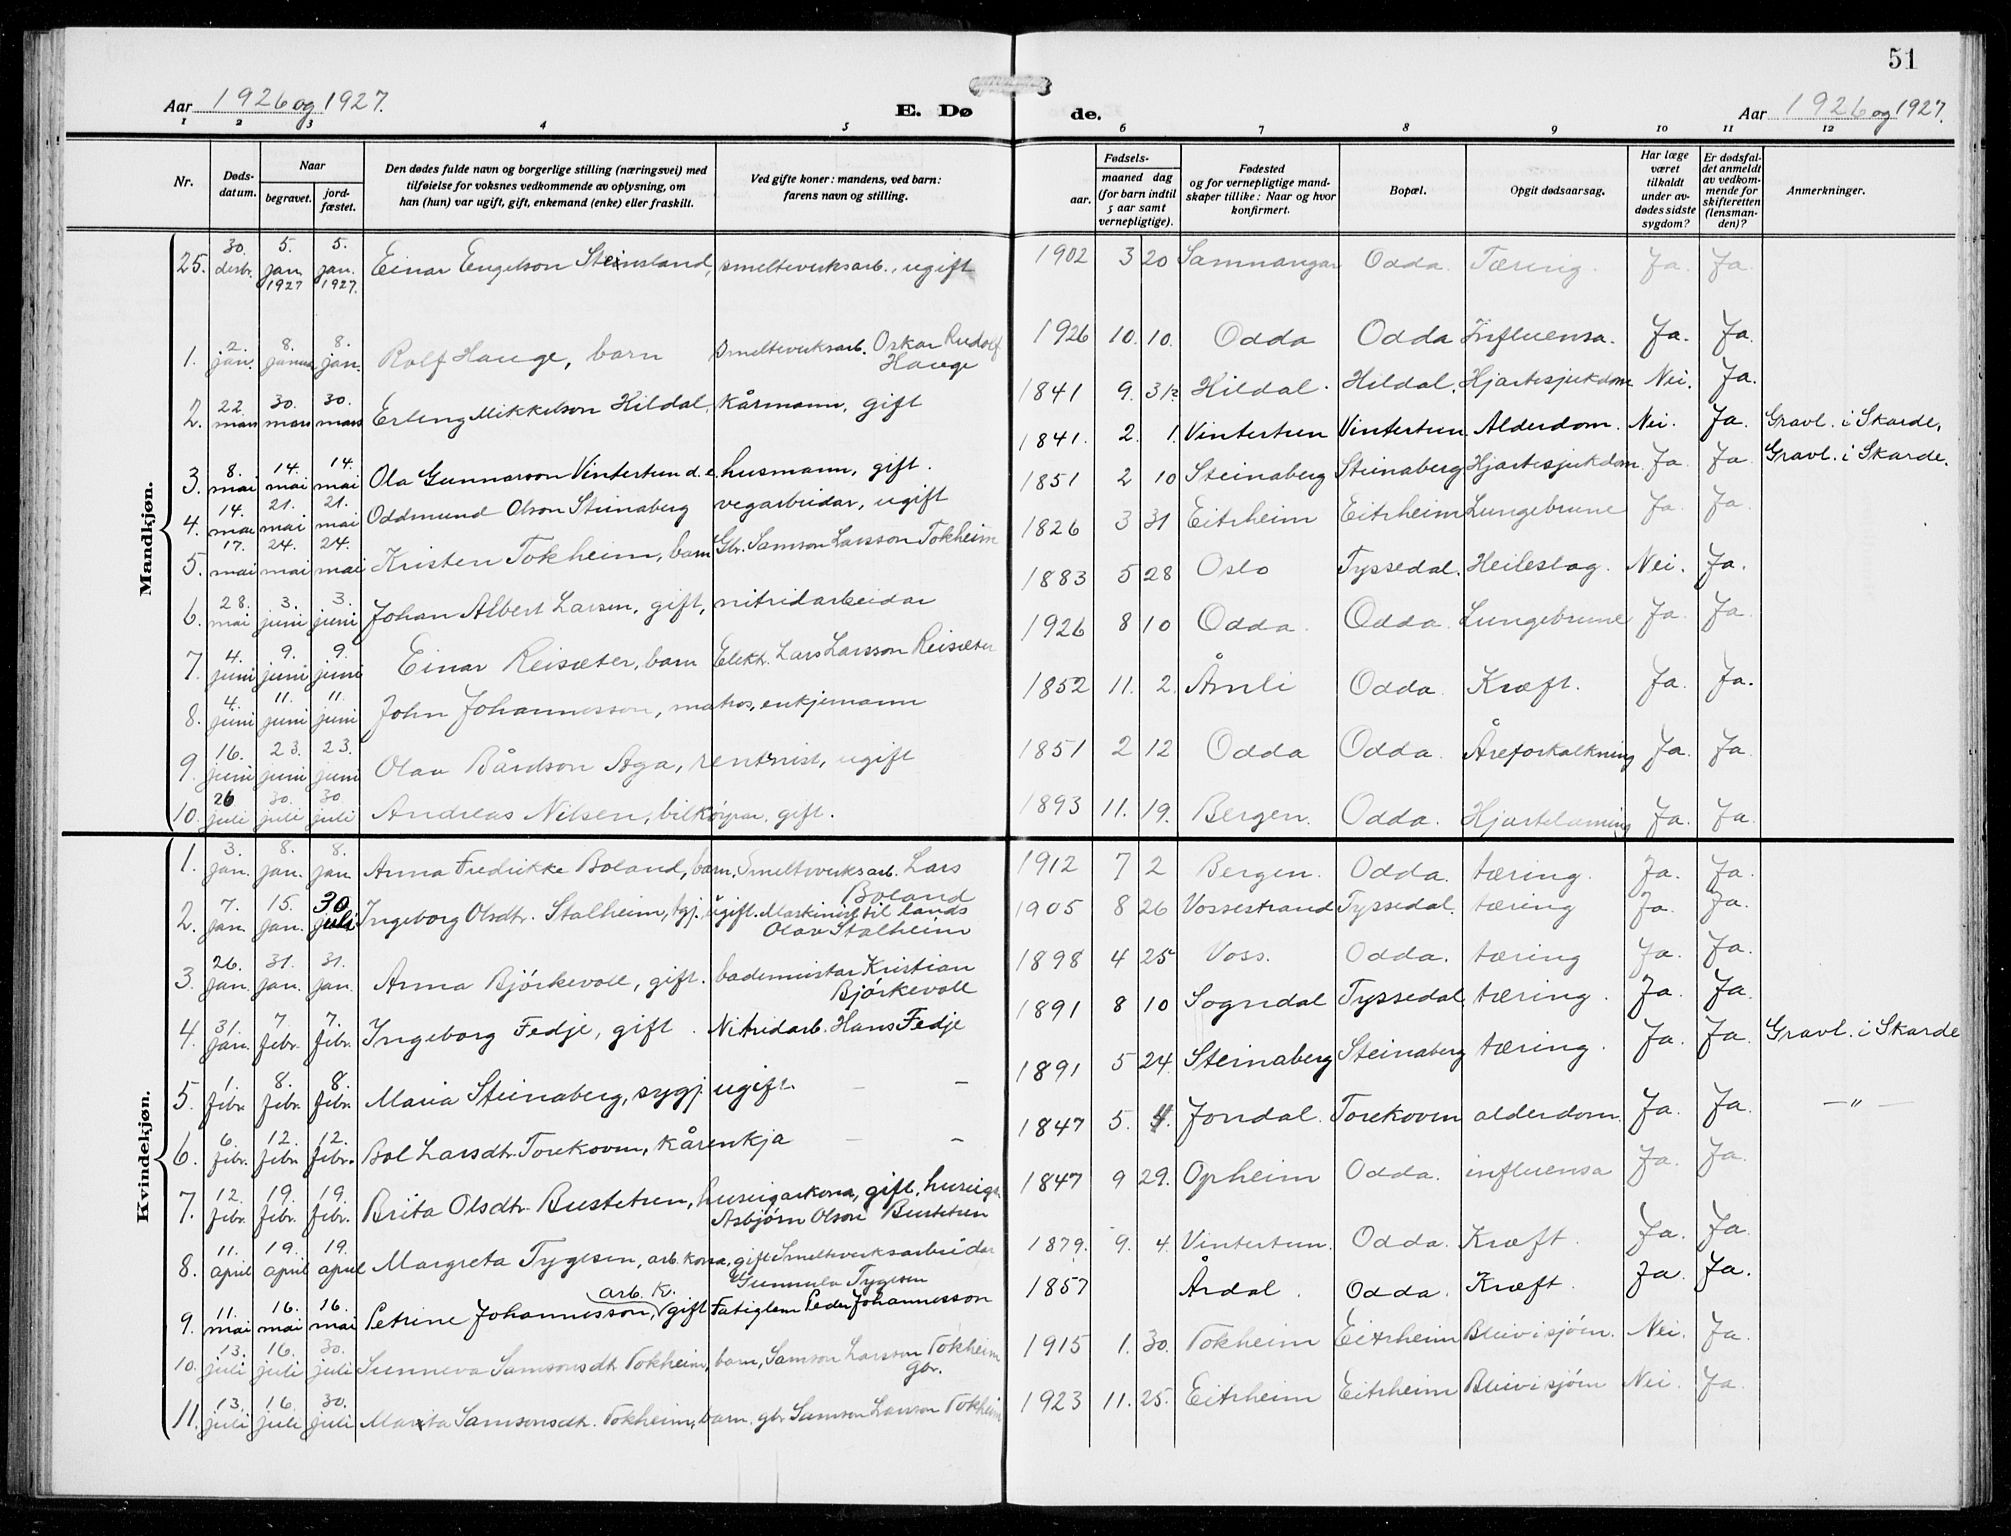 51
Aar 1926 og 1927. E. Døde. Aar 1926 og 1927.
1 2 3 4 5 6 7 8 9 10 11 12
Nr. Dødsdatum. Naar begravet. jordfæstet. Den dødes fulde navn og borgerlige stilling (næringsvei) med tilføielse for voksnes vedkommende av oplysning, om han (hun) var ugift, gift, enkemand (enke) eller fraskilt. Ved gifte koner: mandens, ved barn: farens navn og stilling. Fødsels- aar. maaned dag (for barn indtil 5 aar samt vernepligtige). Fødested og for vernepligtige mandskaper tillike: Naar og hvor konfirmert. Bopæl. Opgit dødsaarsag. Har læge været tilkaldt under avdødes sidste sygdom? Er dødsfaldet anmeldt av vedkommende for skifteretten (lensmanden)? Anmerkninger.
Mandkjøn.
25. 30. desbr. 5. jan. 1927 5. jan. 1927. Einar Engelson Steinsland, smelteverksarb., ugift 1902 3 20 Samnangar Odda. Tæring. Ja. Ja.
1. 2. jan. 8. januar 8. jan. Rolf Hauge, barn Smelteverksarb. Oskar Rudolf Hauge 1926 10. 10. Odda Odda Influensa. Ja. Ja.
2. 22. mars 30. mars 30. mars Erling Mikkelson Hildal, kårmann, gift 1841 9. Hildal. Hildal. Hjartesjukdom Nei. Ja.
3. 8. mai 14. mai 14. mai Ola Gunnarson Vintertun d.e. husmann, gift. 1841. 2. 1. Vintertun Vintertun Alderdom. Nei. Ja. Gravl. i Skarde.
4. 14. mai 21. mai 21. mai Oddmund Olson Steinaberg vegarbeidar, ugift 1851 2 10 Steinaberg Steinaberg Hjartesjukdom Ja. Ja Gravl. i Skarde.
5. 17. mai 24. mai 24. mai Kristen Tokheim, barn Gbr. Samson Larsson Tokheim 1826 3 31 Eitrheim Eitrheim Lungebrune Ja. Ja
6. 28. mai 3. juni 3. juni Johan Albert Larsen, gift, nitridarbeidar 1883 5 28 Oslo Tyssedal. Heileslag. Nei. Ja.
7. 4. juni 9. juni 9. juni Einar Reisæter, barn Elekt. Lars Larsson Reisæter 1926 8 10 Odda. Odda. Lungebrune Ja. Ja
8. 4. juni 11. juni 11. juni John Johannesson, matros, enkjemann 1852 11. 2. Åmli Odda. Kræft. Ja. Ja.
9. 16. juni 23. juni 23. juni Olav Bårdson Aga, rentnist, ugift 1851 2 12 Odda Odda. Åreforkalkning Ja. Ja
10. 26 juli 30. juli 30 juli Andreas Nilsen, bilkøyrar, gift. 1893 11. 19. Bergen. Odda. Hjartelaming Ja. Ja.
Kvindekjøn.
1. 3. jan. 8. jan. 8. jan. Anna Fredrikke Boland, barn, Smelteverksarb. Lars Boland 1912 7 2 Bergen. Odda. tæring. Ja. Ja.
2. 7. jan. 15. jan. 30. juli Ingeborg Olsdtr. Stalheim, tgj. ugift. Maskinist til lands Olav Stalheim 1905 8 26 Vossestrand Tyssedal. tæring Ja. Ja.
3. 26. jan. 31. jan. 31. jan. Anna Bjørkevoll, gift. bademeistar Kristian Bjørkevoll 1898 4 25 Voss. Odda. tæring Ja. Ja.
4. 31. jan. 7 febr. 7. febr. Ingeborg Fedje, gift. Nitridarb. Hans Fedje 1891 8 10 Sogndal Tyssedal tæring. Ja. Ja.
5. 1. febr. 8. febr. 8. febr. Maria Steinaberg, sygj. ugift. — — 1891 5 24. Steinaberg Steinaberg tæring. Ja. Ja. Gravl. i Skarde
6. 6. febr. 12. febr. 12. febr. Bol Larsdtr. Torekoven, kårenkja — — 1847 5. 4. Jondal. Torekoven alderdom. Ja. Ja. —"—
7. 12. febr. 19. febr. 19. febr. Brita Olsdtr. Bustetun, huseigarkona, gift, huseig. Asbjørn Olson Bustetun 1847 9 29. Opheim Odda. influensa Ja. Ja.
8. 11. april 19. april 19. april Margreta Tygesen, arb. kona, gift Smelteverksarbeidar Gunnulv Tygesen 1879. 9. 4. Vintertun. Odda. Kræft. Ja. Ja.
9. 11. mai 16. mai 16. mai Petrine Johannesson, arb. k. gift Peder Johannesson 1857 Årdal. Odda. Kræft. Ja. Ja.
10. 13. juli 16. juli 30. juli Sunneva Samsonsdtr. Tokheim, barn, Samson Larsson Tokheim gbr. 1915 1. 30. Tokheim Eitrheim Bleiv i sjøen. Nei. Ja.
11. 13. juli 16. juli 30. juli Marta Samsonsdtr. Tokheim, barn. gbr Samson Larsson Tokheim 1923 11. 25. Eitrheim Eitrheim Bleiv i sjøen Nei. Ja.